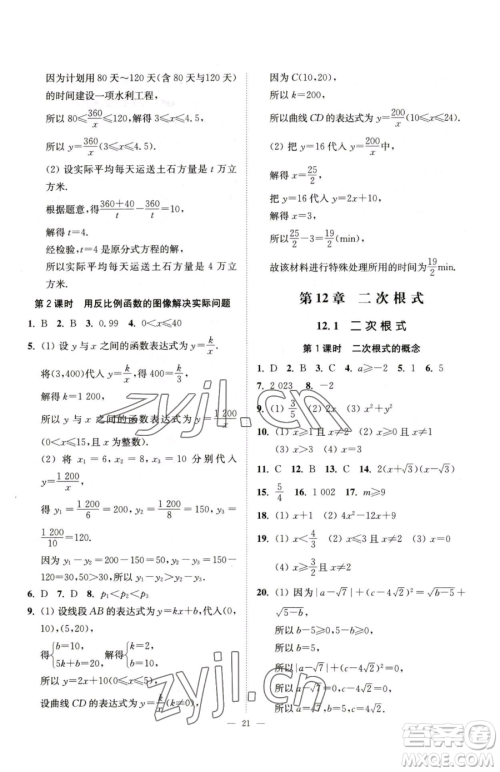 因为计划用 80 天～120 天(含 80 天与 120 天)
的时间建设一项水利工程,
所以 80≤360/x≤120,解得 3≤x≤4.5,
所以 y=360/x(3≤x≤4.5).
(2) 设实际平均每天运送土石方量是 t 万立
方米.
根据题意,得(360+40)/t-360/t=10,
解得 t=4.
经检验,t=4 是原分式方程的解,
所以实际平均每天运送土石方量是 4 万立
方米.
第 2 课时 用反比例函数的图像解决实际问题
1. B 2. B 3. 0.99 4. 0<x≤40
5. (1) 设 y 与 x 之间的函数表达式为 y=k/x,
将(3,400)代入 y=k/x,得 400=k/3,
解得 k=1 200,
所以 y 与 x 之间的函数表达式为 y=1 200/x
(0<x≤15,且 x 为整数).
(2) 将 x₁=6,x₂=8,x₃=10 分别代入
y=1 200/x,得
y₁=1 200/6=200,y₂=1 200/8=150,y₃=
1 200/10=120.
因为 y₁-y₂=200-150=50,y₂-y₃=150-
120=30,50>30,所以 y₁-y₂>y₂-y₃.
6. D 7. D 8. p₁<p₂<p₃
9. (1) 设线段 AB 的表达式为 y=kx+b,代入(0,
10),(5,20),
得{b=10, 5k+b=20,解得{b=10, k=2,
所以 y=2x+10(0≤x≤5).
设曲线 CD 的表达式为 y=k/x(k≠0),
因为 C(10,20),
所以 k=200,
所以曲线 CD 的表达式为 y=200/x(10≤x≤24).
(2) 把 y=16 代入 y=200/x中,
解得 x=25/2,
把 y=16 代入 y=2x+10 中,
解得 x=3,
所以25/2-3=19/2(min),
故该材料进行特殊处理所用的时间为19/2 min.
第 12 章 二 次 根 式
12.1 二 次 根 式
第 1 课时 二次根式的概念
1. D 2. B 3. C 4. a≥-2 5. 1 6. 5
7. 2 023 8. -2
9. (1) 3/5 (2) 2x (3) x²+y²
10. (1) x≤1 且 x≠-2 (2) x≥0 且 x≠1
(3) x≥-1 且 x≠2
11. C 12. B 13. C 14. 2(x+√3)(x-√3)
15. 5/4 16. 1 002 17. m≥9
18. (1) x+1 (2) 4x²-12x+9
19. (1) x<4/3 (2) x≤3 且 x≠-2
(3) x≥0
20. (1) 因为|a-√7|+(c-4√2)²=√(b-5)+
√(5-b),
所以 b-5≥0,5-b≥0,
所以 b=5,
所以|a-√7|+(c-4√2)²=0,
所以 a-√7=0,c-4√2=0,
21
zyjl.cn
zyjl.cn